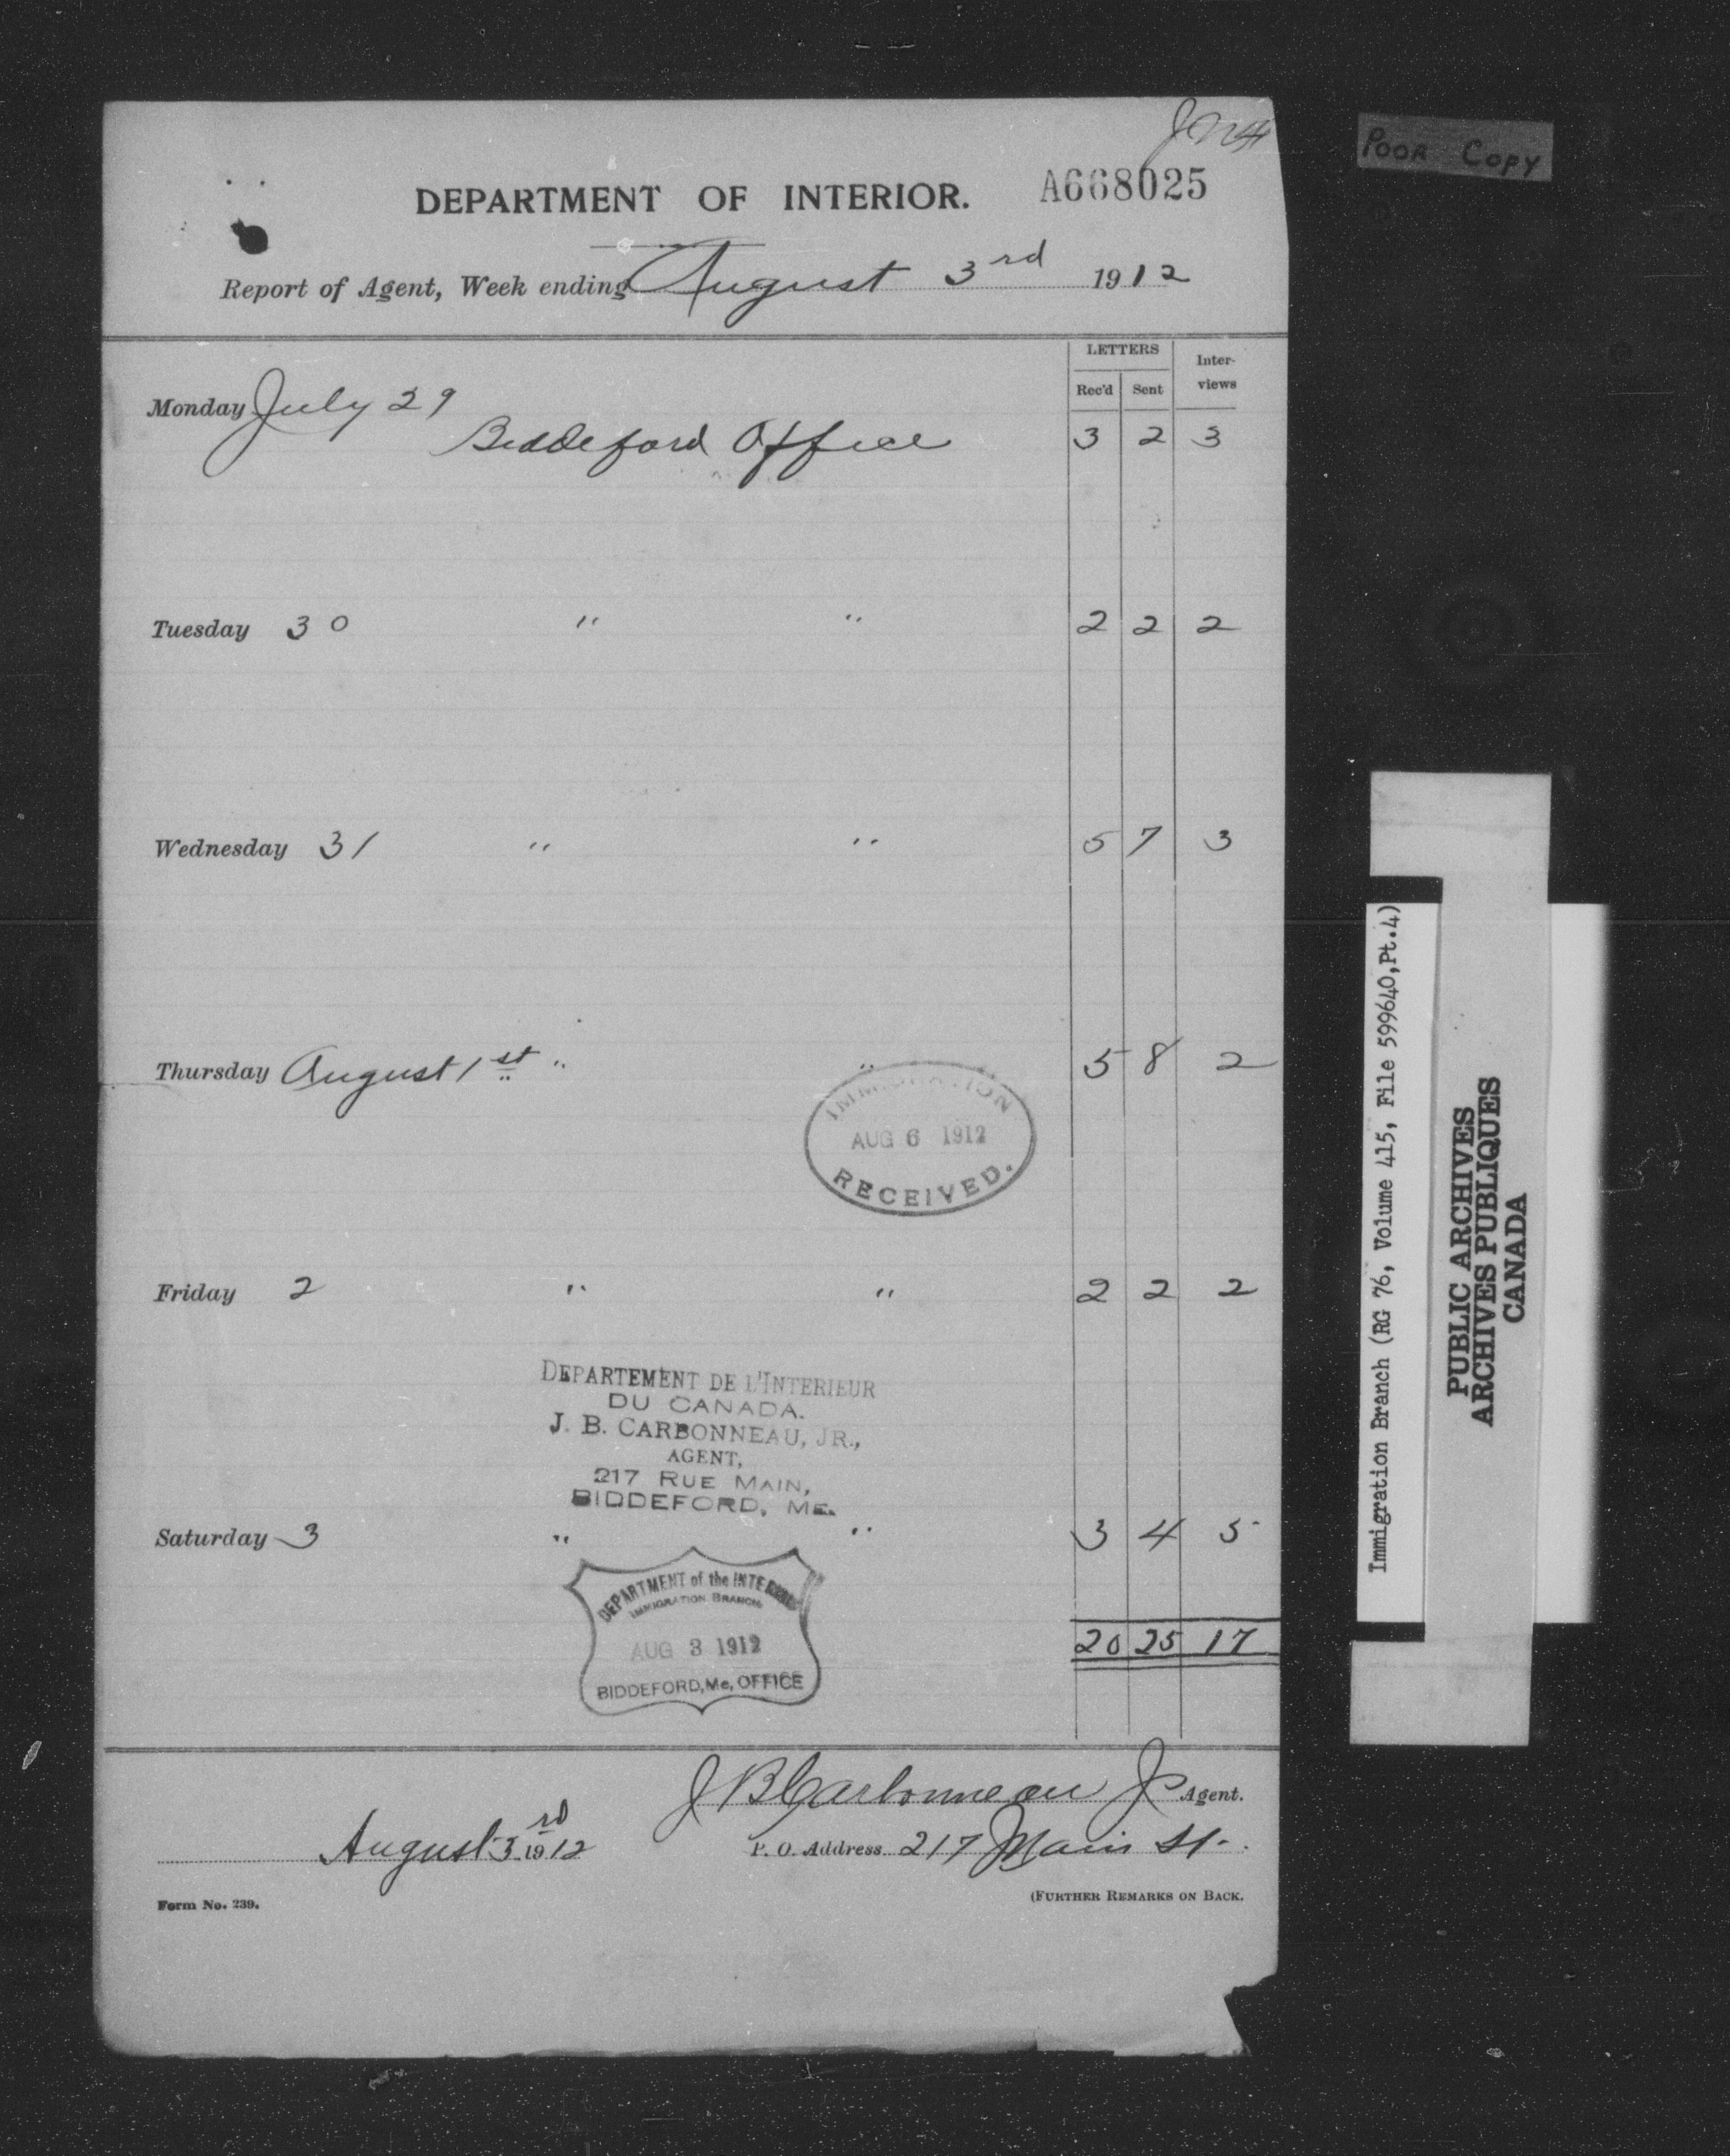 POOR COPY
DEPARTMENT OF INTERIOR. A668025
Report of Agent, Week ending August 3rd 1912
LETTERS Inter-views
Rec'd Sent
Monday July 29
Biddeford Office 3 2 3
Tuesday 30 " " 2 2 2
Wednesday 31 " " 5 7 3
Thursday August 1st " " 5 8 2
IMMIGRATION
AUG 6 1912
RECEIVED.
Friday 2 " " 2 2 2
DEPARTEMENT DE L'INTERIEUR
DU CANADA.
J. B. CARBONNEAU, JR.,
AGENT,
217 RUE MAIN,
BIDDEFORD, ME.
Saturday 3 " " 3 4 5
DEPARTMENT of the INTERIOR
IMMIGRATION BRANCH
AUG 3 1912
BIDDEFORD, Me, OFFICE
20 25 17
J B Carbonneau Jr Agent.
August 3rd 1912 P. O. Address 217 Main St.
Form No. 239. (FURTHER REMARKS ON BACK.
Immigration Branch (RG 76, Volume 415, File 599640,Pt.4)
PUBLIC ARCHIVES
ARCHIVES PUBLIQUES
CANADA